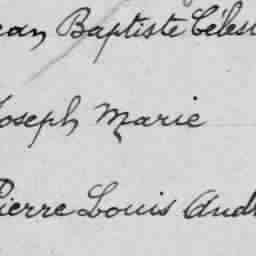 Jean Baptiste Célest
Joseph Marie
Pierre Louis And